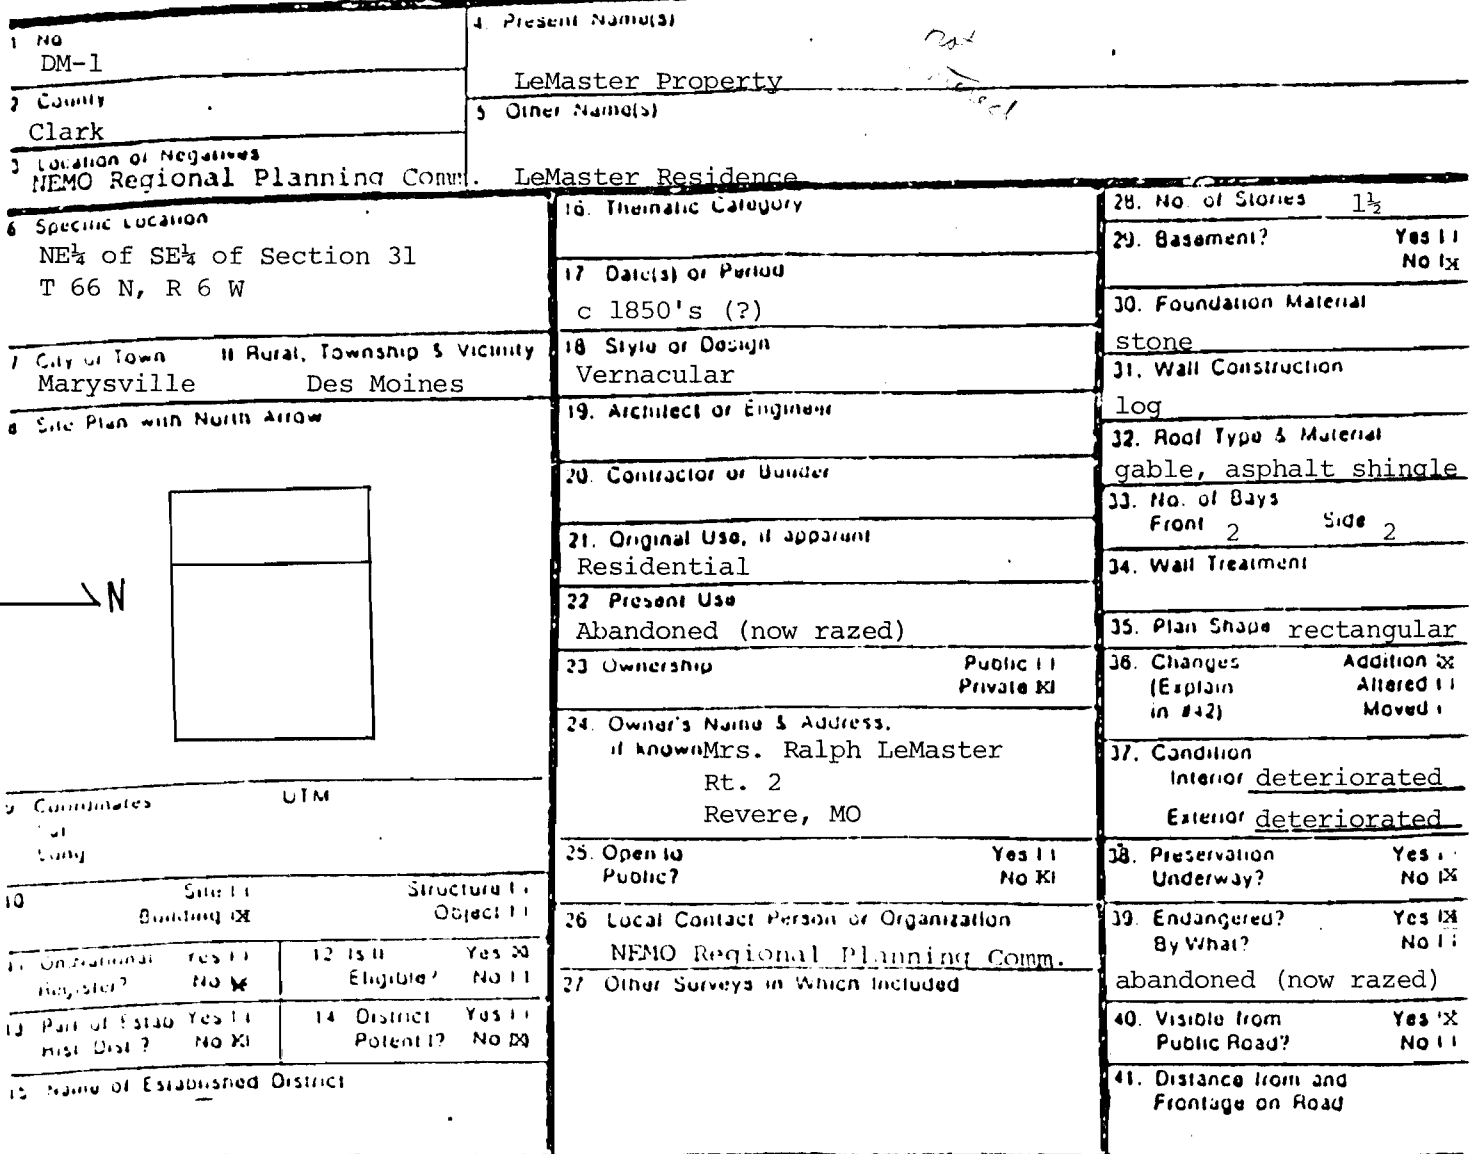 1 No
DM-1
2 County
Clark
3 Location of Negatives
NEMO Regional Planning Comm.
4. Present Name(s)
LeMaster Property
5 Other Name(s)
LeMaster Residence
6 Specific Location
NE¼ of SE¼ of Section 31
T 66 N, R 6 W
7 City or Town If Rural, Township & Vicinity
Marysville Des Moines
8 Site Plan with North Arrow
N
9 Coordinates UTM
Lat
Long
10 Site [ ] Structure [ ]
Building [X] Object [ ]
11 On National Register? Yes [ ] No [X]
12 Is It Eligible? Yes [X] No [ ]
13 Part of Estab Hist. Dist.? Yes [ ] No [X]
14 District Potent'l? Yes [ ] No [X]
15 Name of Established District
16. Thematic Category
17 Date(s) or Period
c 1850's (?)
18 Style or Design
Vernacular
19. Architect or Engineer
20. Contractor or Builder
21. Original Use, if apparent
Residential
22 Present Use
Abandoned (now razed)
23 Ownership Public [ ]
Private [X]
24. Owner's Name & Address,
if known Mrs. Ralph LeMaster
Rt. 2
Revere, MO
25. Open to Yes [ ]
Public? No [X]
26 Local Contact Person or Organization
NEMO Regional Planning Comm.
27 Other Surveys in Which Included
28. No. of Stories 1½
29. Basement? Yes [ ]
No [X]
30. Foundation Material
stone
31. Wall Construction
log
32. Roof Type & Material
gable, asphalt shingle
33. No. of Bays
Front 2 Side 2
34. Wall Treatment
35. Plan Shape rectangular
36. Changes Addition [X]
(Explain Altered [ ]
in #42) Moved [ ]
37. Condition
Interior deteriorated
Exterior deteriorated
38. Preservation Yes [ ]
Underway? No [X]
39. Endangered? Yes [X]
By What? No [ ]
abandoned (now razed)
40. Visible from Yes [X]
Public Road? No [ ]
41. Distance from and
Frontage on Road